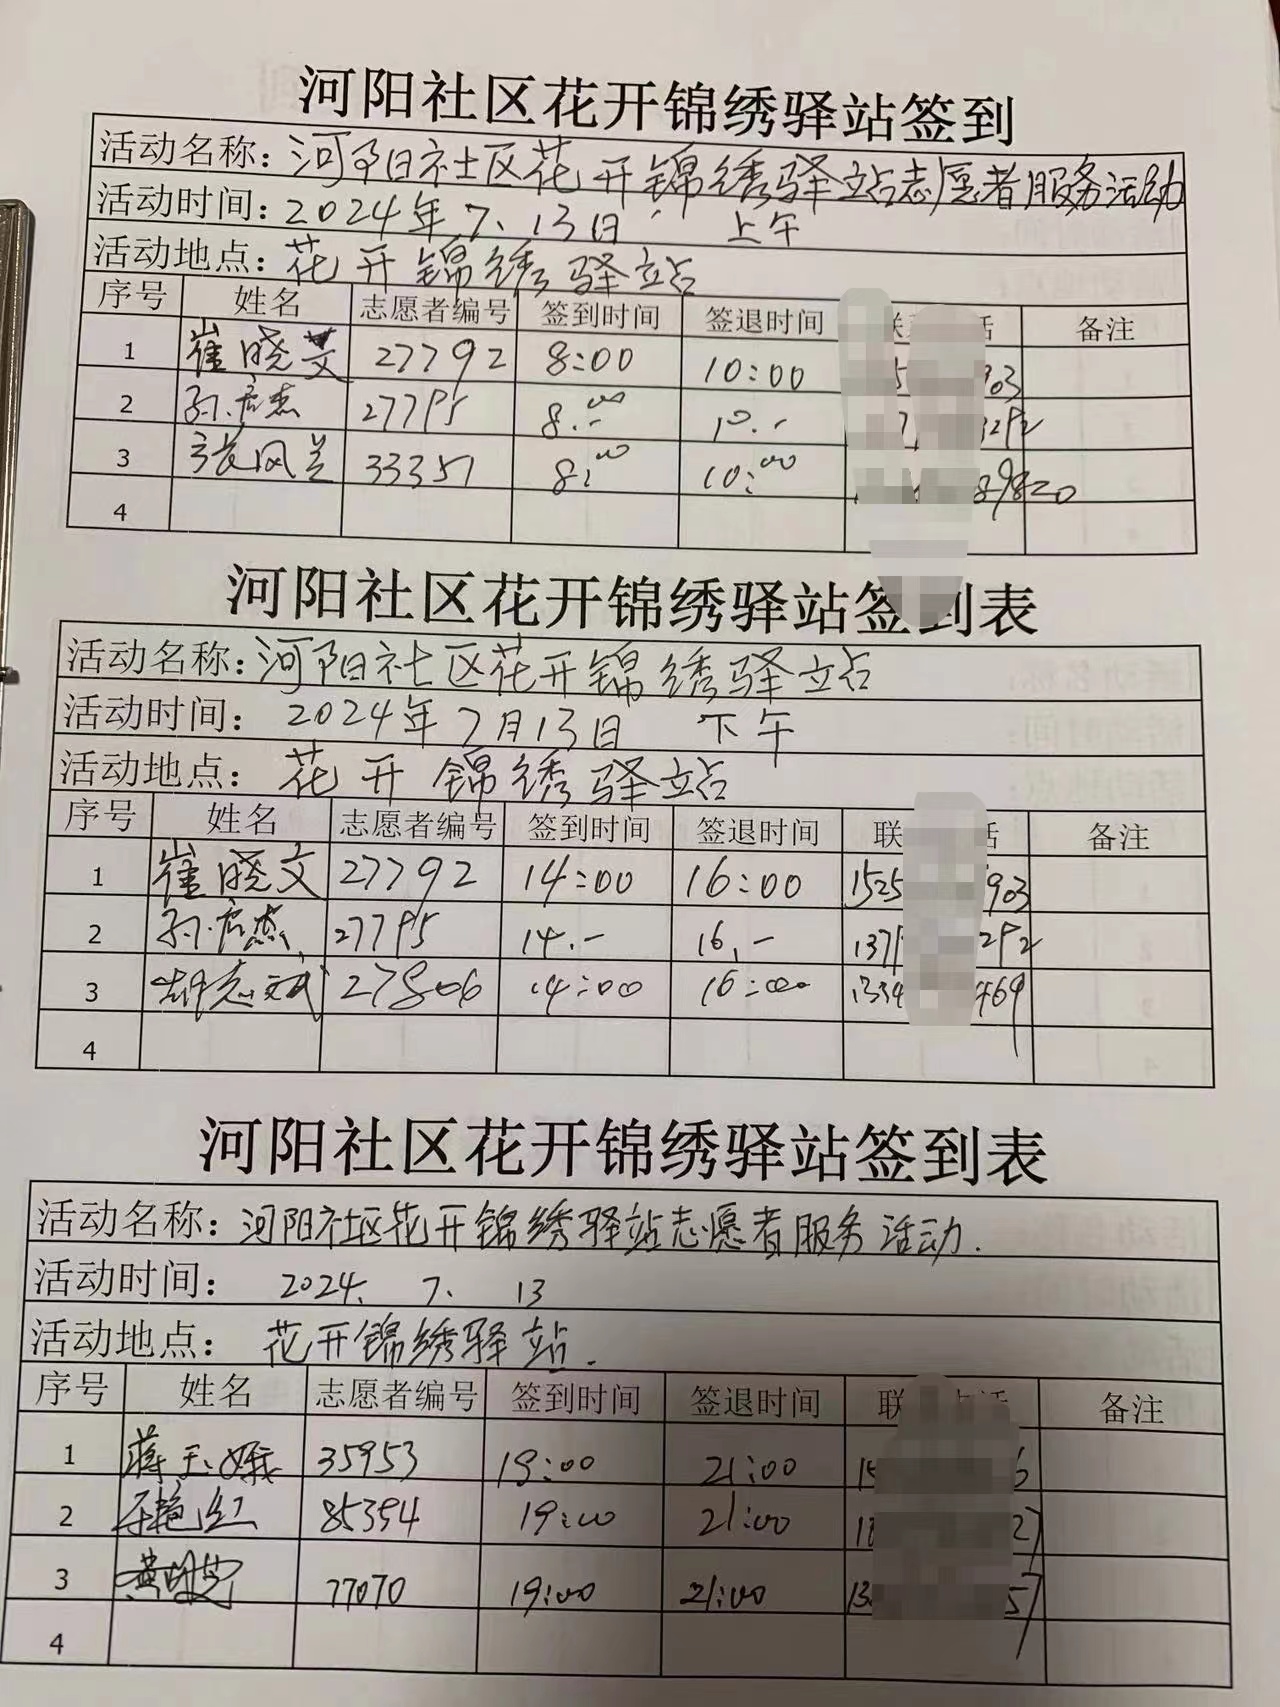 河阳社区花开锦绣驿站签到
活动名称：河阳社区花开锦绣驿站志愿者服务活动
活动时间：2024年7、13日 上午
活动地点：花开锦绣驿站
序号 姓名 志愿者编号 签到时间 签退时间 联 话 备注
1 崔晓文 27792 8:00 10:00 903
2 27795 8:00 10:- 292
3 张风兰 33351 8:00 10:00 89820
4
河阳社区花开锦绣驿站签到表
活动名称：河阳社区花开锦绣驿站
活动时间：2024年7月13日 下午
活动地点：花开锦绣驿站
序号 姓名 志愿者编号 签到时间 签退时间 联 话 备注
1 崔晓文 27792 14:00 16:00 1525 903
2 27795 14.- 16.- 137 292
3 志斌 27806 14:00 16:00 1334 469
4
河阳社区花开锦绣驿站签到表
活动名称：河阳社区花开锦绣驿站志愿者服务活动.
活动时间： 2024. 7. 13
活动地点： 花开锦绣驿站.
序号 姓名 志愿者编号 签到时间 签退时间 联 话 备注
1 蒋玉娥 35953 19:00 21:00 15 6
2 艳红 85394 19:00 21:00 18 27
3 黄 77070 19:00 21:00 13 57
4